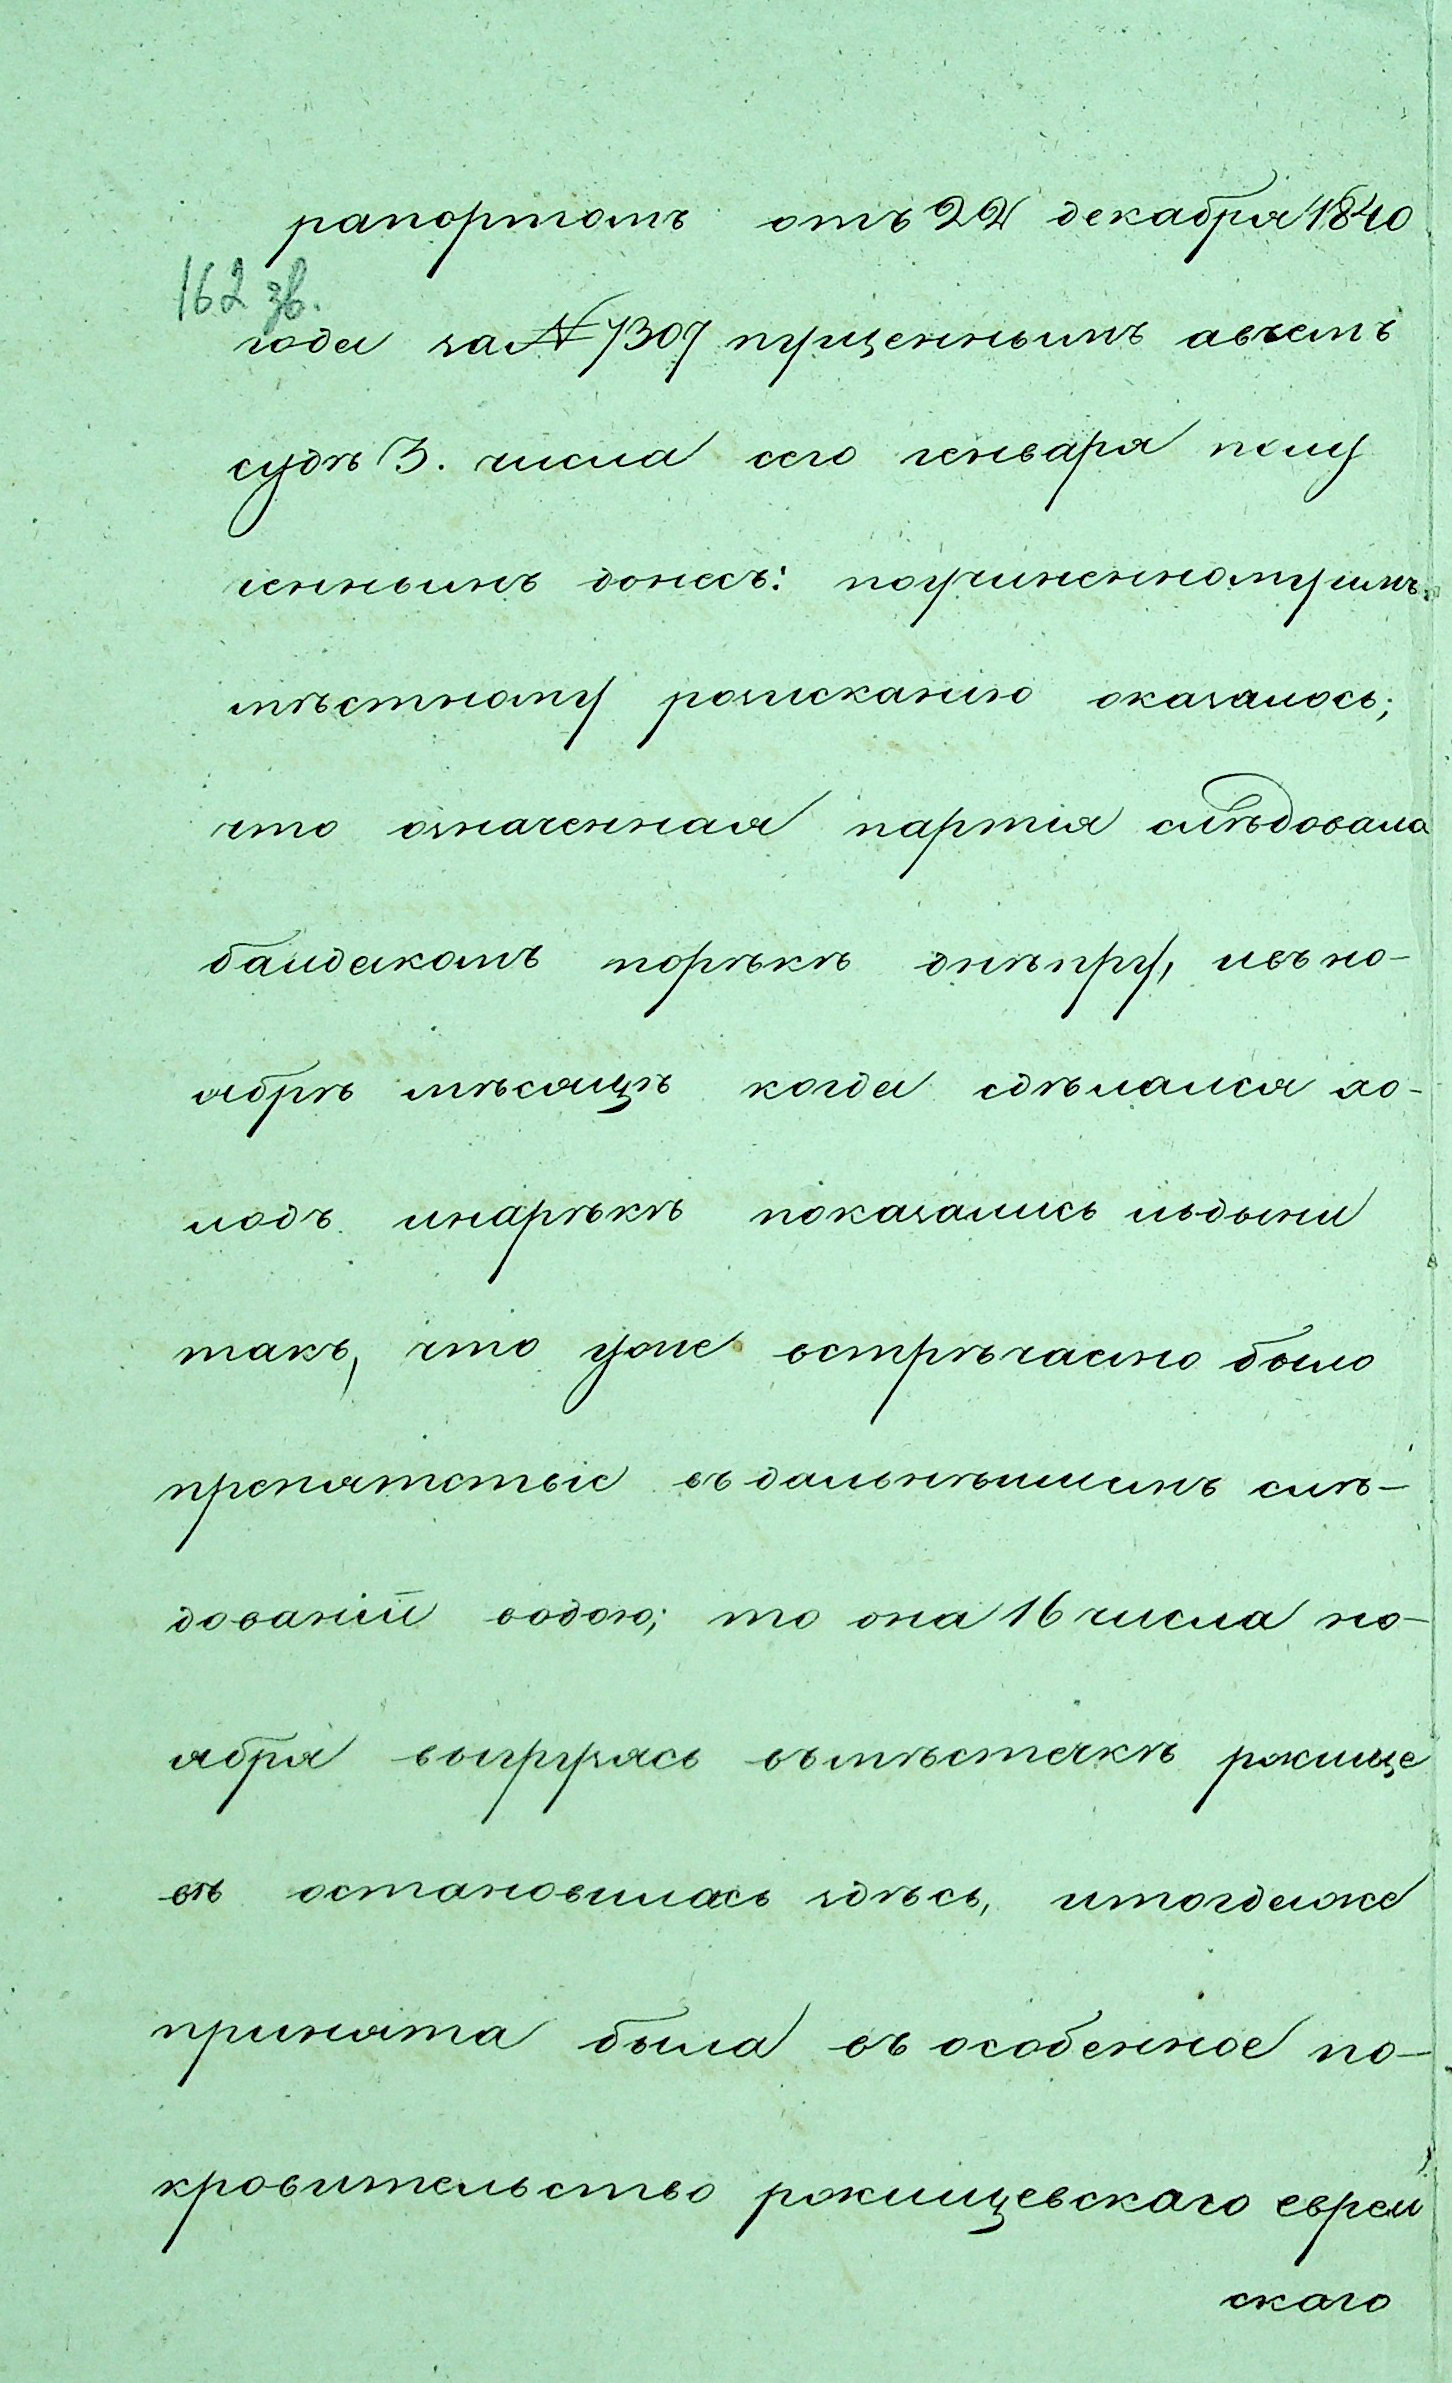 рапортомъ отъ 22 декабря 1840
162 зв.
года за № 7307 пущеннымъ авъемъ
судѣ 3. числа сего генваря полу
ченнымъ донесъ: поучиненномуимъ
мѣстному розисканію оказалось;
что означенная партія слѣдовала
байдакомъ порѣкѣ днѣпру, ивъ но-
ябрѣ мѣсяцѣ когда сдѣлался хо-
лодъ инарѣкѣ показались льдыни
такъ, что уже встрѣчаемо было
препятстьіе въдальнѣйшимъ слѣ-
дованій водою; то она 16 числа но-
ября выгрузясь въмѣстечкѣ ржище
вѣ остановилась здѣсь, итогдаже
принята была въ особенное по-
кровительство ржищевскаго еврей
скаго